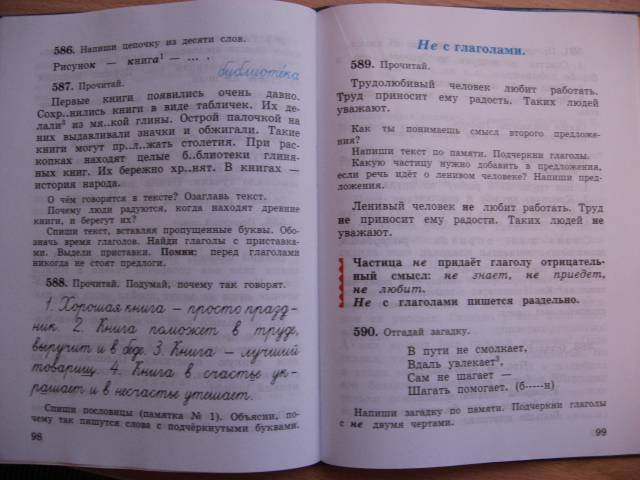 586. Напиши цепочку из десяти слов.
Рисунок — книга¹ — ... .
библиоте́ка
587. Прочитай.
Первые книги появились очень давно.
Сохр..нились книги в виде табличек. Их де-
лали³ из мя..кой глины. Острой палочкой на
них выдавливали значки и обжигали. Такие
книги могут пр..л..жать столетия. При рас-
копках находят целые б..блиотеки глиня-
ных книг. Их бережно хр..нят. В книгах —
история народа.
О чём говорится в тексте? Озаглавь текст.
Почему люди радуются, когда находят древние
книги, и берегут их?
Спиши текст, вставляя пропущенные буквы. Обо-
значь время глаголов. Найди глаголы с приставка-
ми. Выдели приставки. Помни: перед глаголами
никогда не стоят предлоги.
588. Прочитай. Подумай, почему так говорят.
1. Хорошая книга – просто празд-
ник. 2. Книга поможет в труде,
выручит и в беде. 3. Книга – лучший
товарищ. 4. Книга в счастье ук-
рашает и в несчастье утешает.
Спиши пословицы (памятка № 1). Объясни, по-
чему так пишутся слова с подчёркнутыми буквами.
98
Не с глаголами.
589. Прочитай.
Трудолюбивый человек любит работать.
Труд приносит ему радость. Таких людей
уважают.
Как ты понимаешь смысл второго предложе-
ния?
Напиши текст по памяти. Подчеркни глаголы.
Какую частицу нужно добавить в предложения,
если речь идёт о ленивом человеке? Напиши пред-
ложения.
Ленивый человек не любит работать. Труд
не приносит ему радости. Таких людей не
уважают.
Частица не придаёт глаголу отрицатель-
ный смысл: не знает, не приедет,
не любит.
Не с глаголами пишется раздельно.
590. Отгадай загадку.
В пути не смолкает,
Вдаль увлекает³,
Сам не шагает —
Шагать помогает. (б-----н)
Напиши загадку по памяти. Подчеркни глаголы
с не двумя чертами.
99